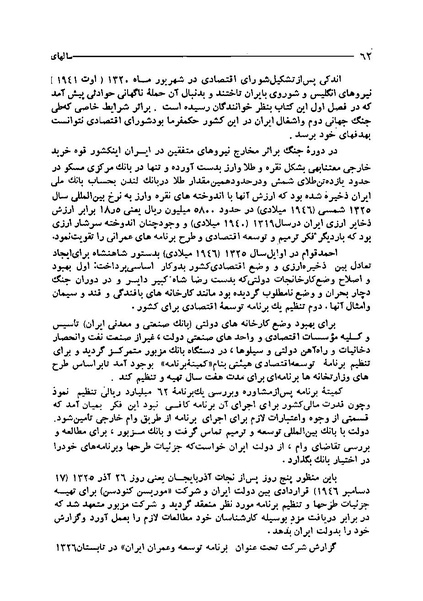 ۶۲ سالهای
اندکی پس‌از تشکیل‌شورای اقتصادی در شهریور ماه ۱۳۲۰ ( اوت ۱۹۴۱ )
نیروهای انگلیس و شوروی بایران تاختند و بدنبال آن حملهٔ ناگهانی حوادثی پیش آمد
که در فصل اول این کتاب بنظر خوانندگان رسیده است . براثر شرایط خاصی که‌طی
جنگ جهانی دوم واشغال ایران در این کشور حکمفرما بودشورای اقتصادی نتوانست
بهدفهای خود برسد .
در دورهٔ جنگ براثر مخارج نیروهای متفقین در ایران اینکشور قوه خرید
خارجی معتنابهی بشکل نقره و طلا وارز بدست آورده و تنها در بانك مرکزی مسکو در
حدود یازده‌تن‌طلای شمش ودرحدودهمین‌مقدار طلا دربانك لندن بحساب بانك ملی
ایران ذخیره شده بود که ارزش آنها با اندوخته های نقره وارز به نرخ بین‌المللی سال
۱۳۲۵ شمسی (۱۹۴۶ میلادی) در حدود ۵۸۰۰ میلیون ریال یعنی ۱۸ر۵ برابر ارزش
ذخایر ارزی ایران درسال۱۳۱۹ (۱۹۴۰ میلادی) و وجودچنان اندوخته سرشار ارزی
بود که باردیگر"فکر ترمیم و توسعه اقتصادی و طرح برنامه های عمرانی را تقویت‌نمود.
احمدقوام در اوایل‌سال ۱۳۲۵ (۱۹۴۶ میلادی) بدستور شاهنشاه برای‌ایجاد
تعادل بین ذخیره‌ارزی و وضع اقتصادی‌کشور بدوکار اساسی‌پرداخت: اول بهبود
و اصلاح وضع‌کارخانجات دولتی‌که بدست رضا شاه کبیر دایر و در دوران جنگ
دچار بحران و وضع نامطلوب گردیده بود مانند کارخانه های بافندگی و قند و سیمان
وامثال آنها . دوم تنظیم یك برنامه توسعهٔ اقتصادی برای کشور .
برای بهبود وضع کارخانه های دولتی (بانك صنعتی و معدنی ایران) تأسیس
و کلیه مؤسسات اقتصادی و واحد های صنعتی دولت ، غیراز صنعت نفت وانحصار
دخانیات و راه‌آهن دولتی و سیلوها ، در دستگاه بانك مزبور متمرکز گردید و برای
تنظیم برنامهٔ توسعه‌اقتصادی هیئتی بنام«کمیتهٔ‌برنامه» بوجود آمد تابراساس طرح
های وزارتخانه ها برنامه‌ای برای مدت هفت سال تهیه و تنظیم کند .
کمیتهٔ برنامه پس‌ازمشاوره وبررسی یك‌برنامهٔ ۶۲ میلیارد ریالی تنظیم نمود
وچون قدرت مالی‌کشور برای اجرای آن برنامه کافی نبود این فکر بمیان آمد که
قسمتی از وجوه واعتبارات لازم برای اجرای برنامه از طریق وام خارجی تأمین‌شود.
دولت با بانك بین‌المللی توسعه و ترمیم تماس گرفت و بانك مزبور ، برای مطالعه و
بررسی تقاضای وام ، از دولت ایران خواست‌که جزئیات طرحها وبرنامه‌های خودرا
در اختیار بانك بگذارد .
باین منظور پنج روز پس‌از نجات آذربایجان یعنی روز ۲۶ آذر ۱۳۲۵ (۱۷
دسامبر ۱۹۴۶) قراردادی بین دولت ایران و شرکت «موریسن کنودسن» برای تهیهٔ
جزئیات طرحها و تنظیم برنامه مورد نظر منعقد گردید و شرکت مزبور متعهد شد که
در برابر دریافت مزد بوسیله کارشناسان خود مطالعات لازم را بعمل آورد وگزارش
خود را بدولت ایران بدهد .
گزارش شرکت تحت عنوان برنامه توسعه وعمران ایران» در تابستان۱۳۲۶